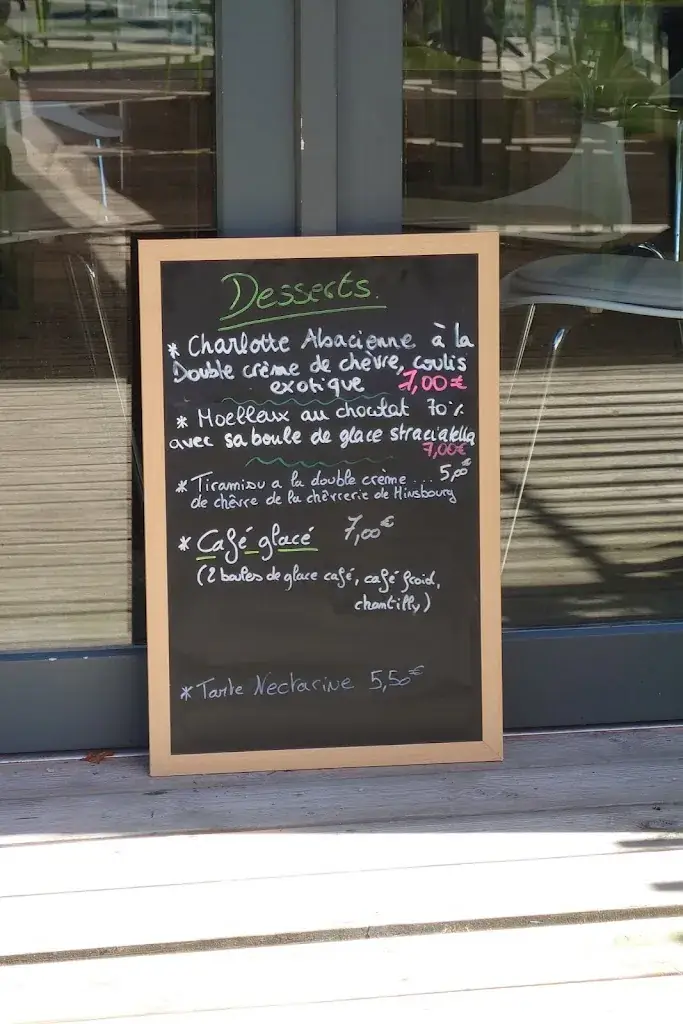 Desserts.
* Charlotte Alsacienne à la
Double crème de chèvre, coulis
exotique 7,00€
* Moelleux au chocolat 70%
avec sa boule de glace straciatella
7,00€
* Tiramisu a la double crème ... 5,00€
de chèvre de la chèvrerie de Hinsbourg
* Café glacé 7,00€
(2 boules de glace café, café froid,
chantilly)
* Tarte Nectarine 5,50€